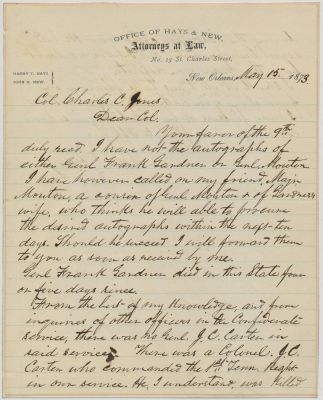 OFFICE OF HAYS & NEW,
Attorneys at Law,
No. 15 St. Charles Street,
HARRY T. HAYS
JOHN D. NEW.
New Orleans, May 15 1873
Col. Charles C. Jones
Dear Col.
Your favor of the 9th
duly recd. I have not the autographs of
either Genl Frank Gardner or Genl Mouton
I have however called on my friend, Major
Mouton, a cousin of Genl Mouton & of Gardner's
wife, who thinks he will able to procure
the desired autographs within the next ten
days. Should he succeed I will forward them
to you as soon as received by me.
Genl Frank Gardner died in this State four
or five days since.
From the best of my Knowledge, and from
inquiries of other officers in the Confederate
service, there was no Genl J. C. Carter in
said service. There was a Colonel J.C.
Carter who commanded the 1st Tenn. Regt
in own service. He, I understand, was Killed